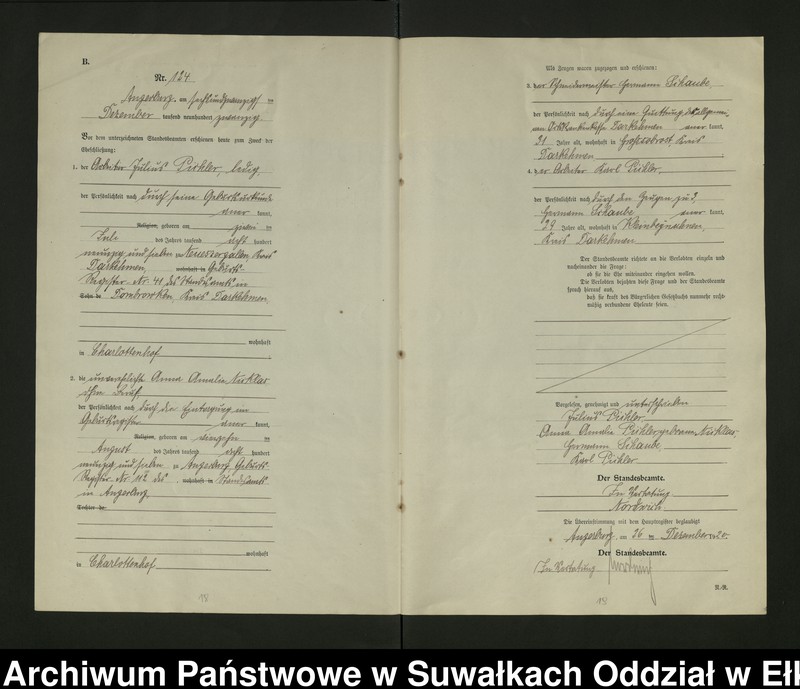 B.
Nr. 124
Angerburg, am sechsundzwanzigsten
Dezember tausend neunhundert zwanzig
Vor dem unterzeichneten Standesbeamten erschienen heute zum Zweck der
Eheschließung:
1. der Arbeiter Julius Pichler, ledig,
der Persönlichkeit nach durch seine Geburtsurkunde
aner kannt,
Religion, geboren am
Juli des Jahres tausend acht hundert
neunzig und sieben in Kreis
Darkehmen, wohnhaft in Geburts-
Register Nr. 41 des Standesamts in
Sohn de Dombrowken, Kreis Darkehmen,
wohnhaft
in Charlottenhof
2. die unverehelichte Anna Amalie Nicklas
ohne Beruf,
der Persönlichkeit nach durch die Eintragung im
Geburtsregister aner kannt,
Religion, geboren am
August des Jahres tausend acht hundert
neunzig und sieben in Angerburg Geburts-
Register Nr. 112 des wohnhaft in Standesamts
in Angerburg
Tochter de
wohnhaft
in Charlottenhof
18
Als Zeugen waren zugezogen und erschienen:
3. der Schneidermeister Hermann Schaube,
der Persönlichkeit nach durch eine Quittung der Allgemei-
nen Ortskrankenkasse Darkehmen aner kannt,
31 Jahre alt, wohnhaft in Kreis
Darkehmen
4. der Arbeiter Karl Pichler,
der Persönlichkeit nach durch den Zeugen zu 3,
Hermann Schaube aner kannt,
39 Jahre alt, wohnhaft in
Kreis Darkehmen
Der Standesbeamte richtete an die Verlobten einzeln und
nacheinander die Frage:
ob sie die Ehe miteinander eingehen wollen.
Die Verlobten bejahten diese Frage und der Standesbeamte
sprach hierauf aus,
daß sie kraft des Bürgerlichen Gesetzbuchs nunmehr recht-
mäßig verbundene Eheleute seien.
Vorgelesen, genehmigt und unterschrieben
Julius Pichler
Anna Amalie Pichler geborene Nicklas
Hermann Schaube
Karl Pichler
Der Standesbeamte.
In Vertretung
Die Übereinstimmung mit dem Hauptregister beglaubigt
Angerburg, am 26 ten Dezember 1920
Der Standesbeamte.
In Vertretung
R.-R.
18
Archiwum Państwowe w Suwałkach Oddział w Ełk